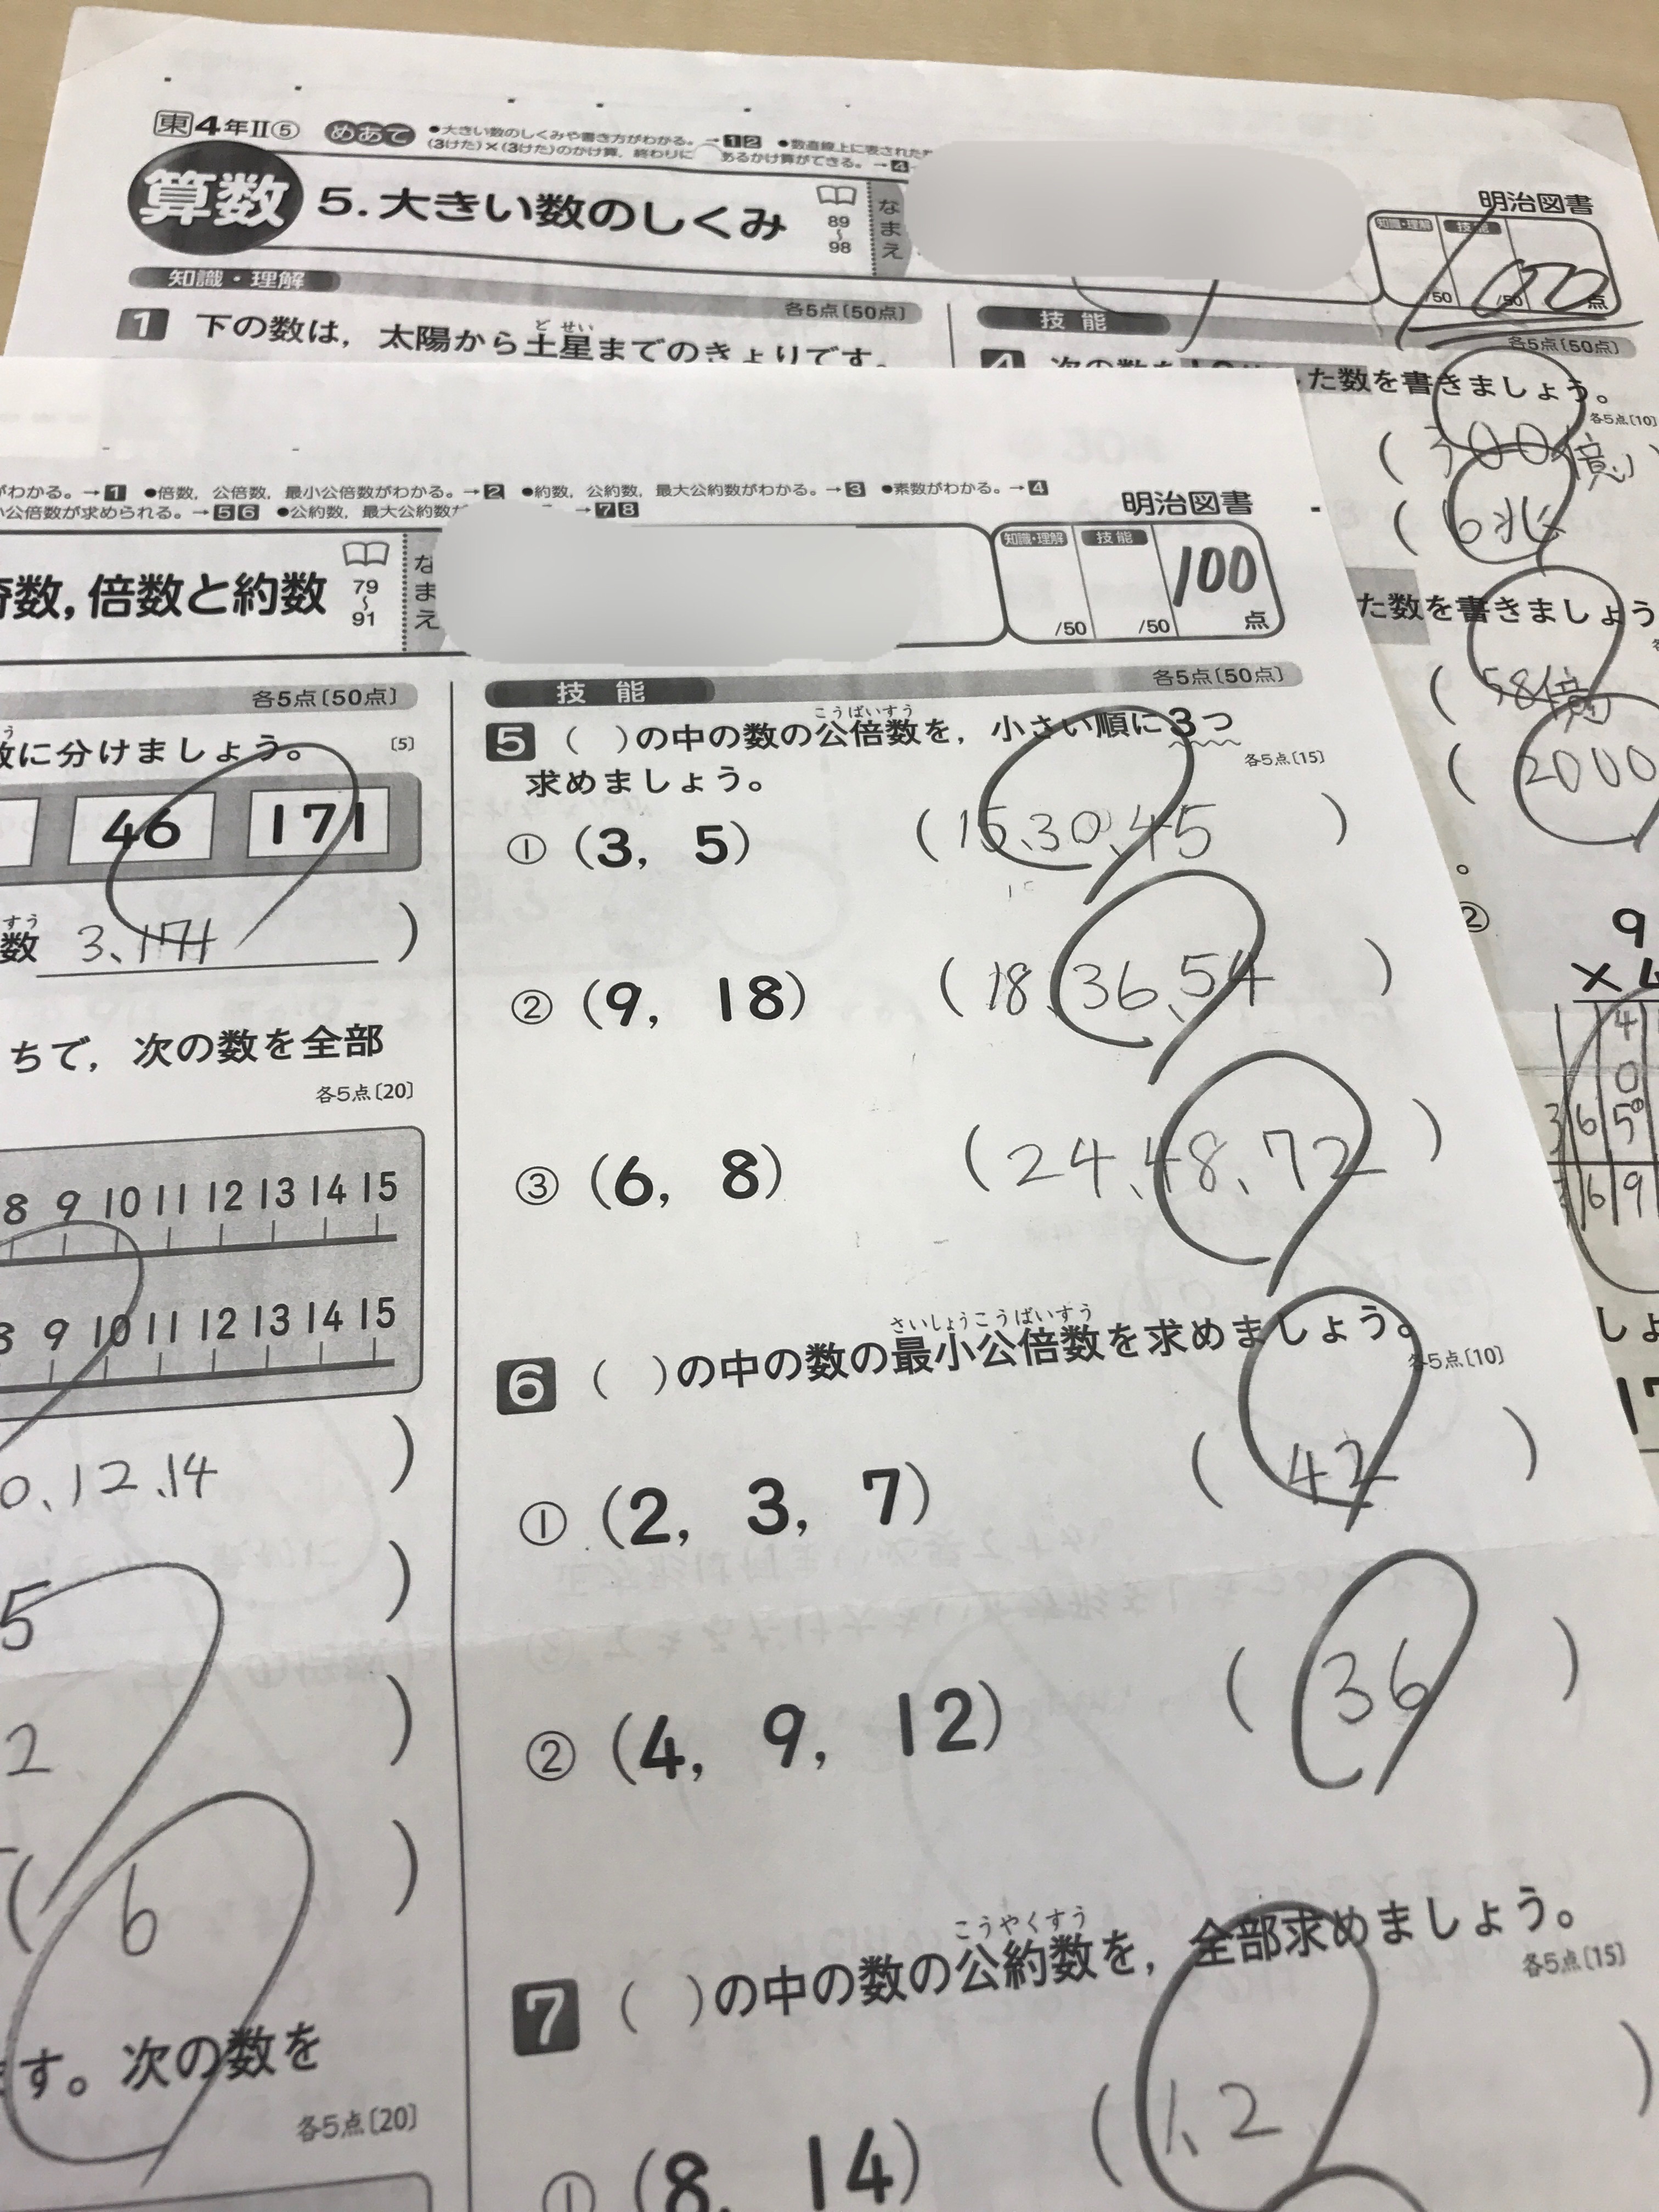 東4年Ⅱ⑤ めあて ●大きい数のしくみや書き方がわかる。→12 ●数直線上に表された
(3けた)×(3けた)のかけ算，終わりに あるかけ算ができる。→4
算数 5.大きい数のしくみ 89〜98 なまえ
明治図書
知識・理解 技能
/50 /50 100点
知識・理解 各5点〔50点〕
1 下の数は，太陽から土星までのきょりです。
ど せい
技能 各5点〔50点〕
4 た数を書きましょう。
各5点〔10〕
(300億)
(6兆)
た数を書きましょう
(58億
(2000
。
② 9
×4
4
0
3 6 5
6 9
しょ
17
がわかる。→1 ●倍数，公倍数，最小公倍数がわかる。→2 ●約数，公約数，最大公約数がわかる。→3 ●素数がわかる。→4
小公倍数が求められる。→56 ●公約数，最大公約数が →78
明治図書
奇数，倍数と約数 79〜91 なまえ
知識・理解 技能
/50 /50 100点
各5点〔50点〕
数に分けましょう。 〔5〕
46 171
すう
数 3、171 )
ちで，次の数を全部
各5点〔20〕
8 9 10 11 12 13 14 15
8 9 10 11 12 13 14 15
0、12、14 )
5 )
2 )
( 6 )
ます。次の数を
各5点〔20〕
技能 各5点〔50点〕
こうばいすう
5 ( )の中の数の公倍数を，小さい順に3つ
求めましょう。
各5点〔15〕
① (3, 5) (15、30、45)
② (9, 18) (18、36、54)
③ (6, 8) (24、48、72)
さいしょうこうばいすう
6 ( )の中の数の最小公倍数を求めましょう。
各5点〔10〕
① (2, 3, 7) (42)
② (4, 9, 12) (36)
こうやくすう
7 ( )の中の数の公約数を，全部求めましょう。
各5点〔15〕
① (8, 14) (1、2)